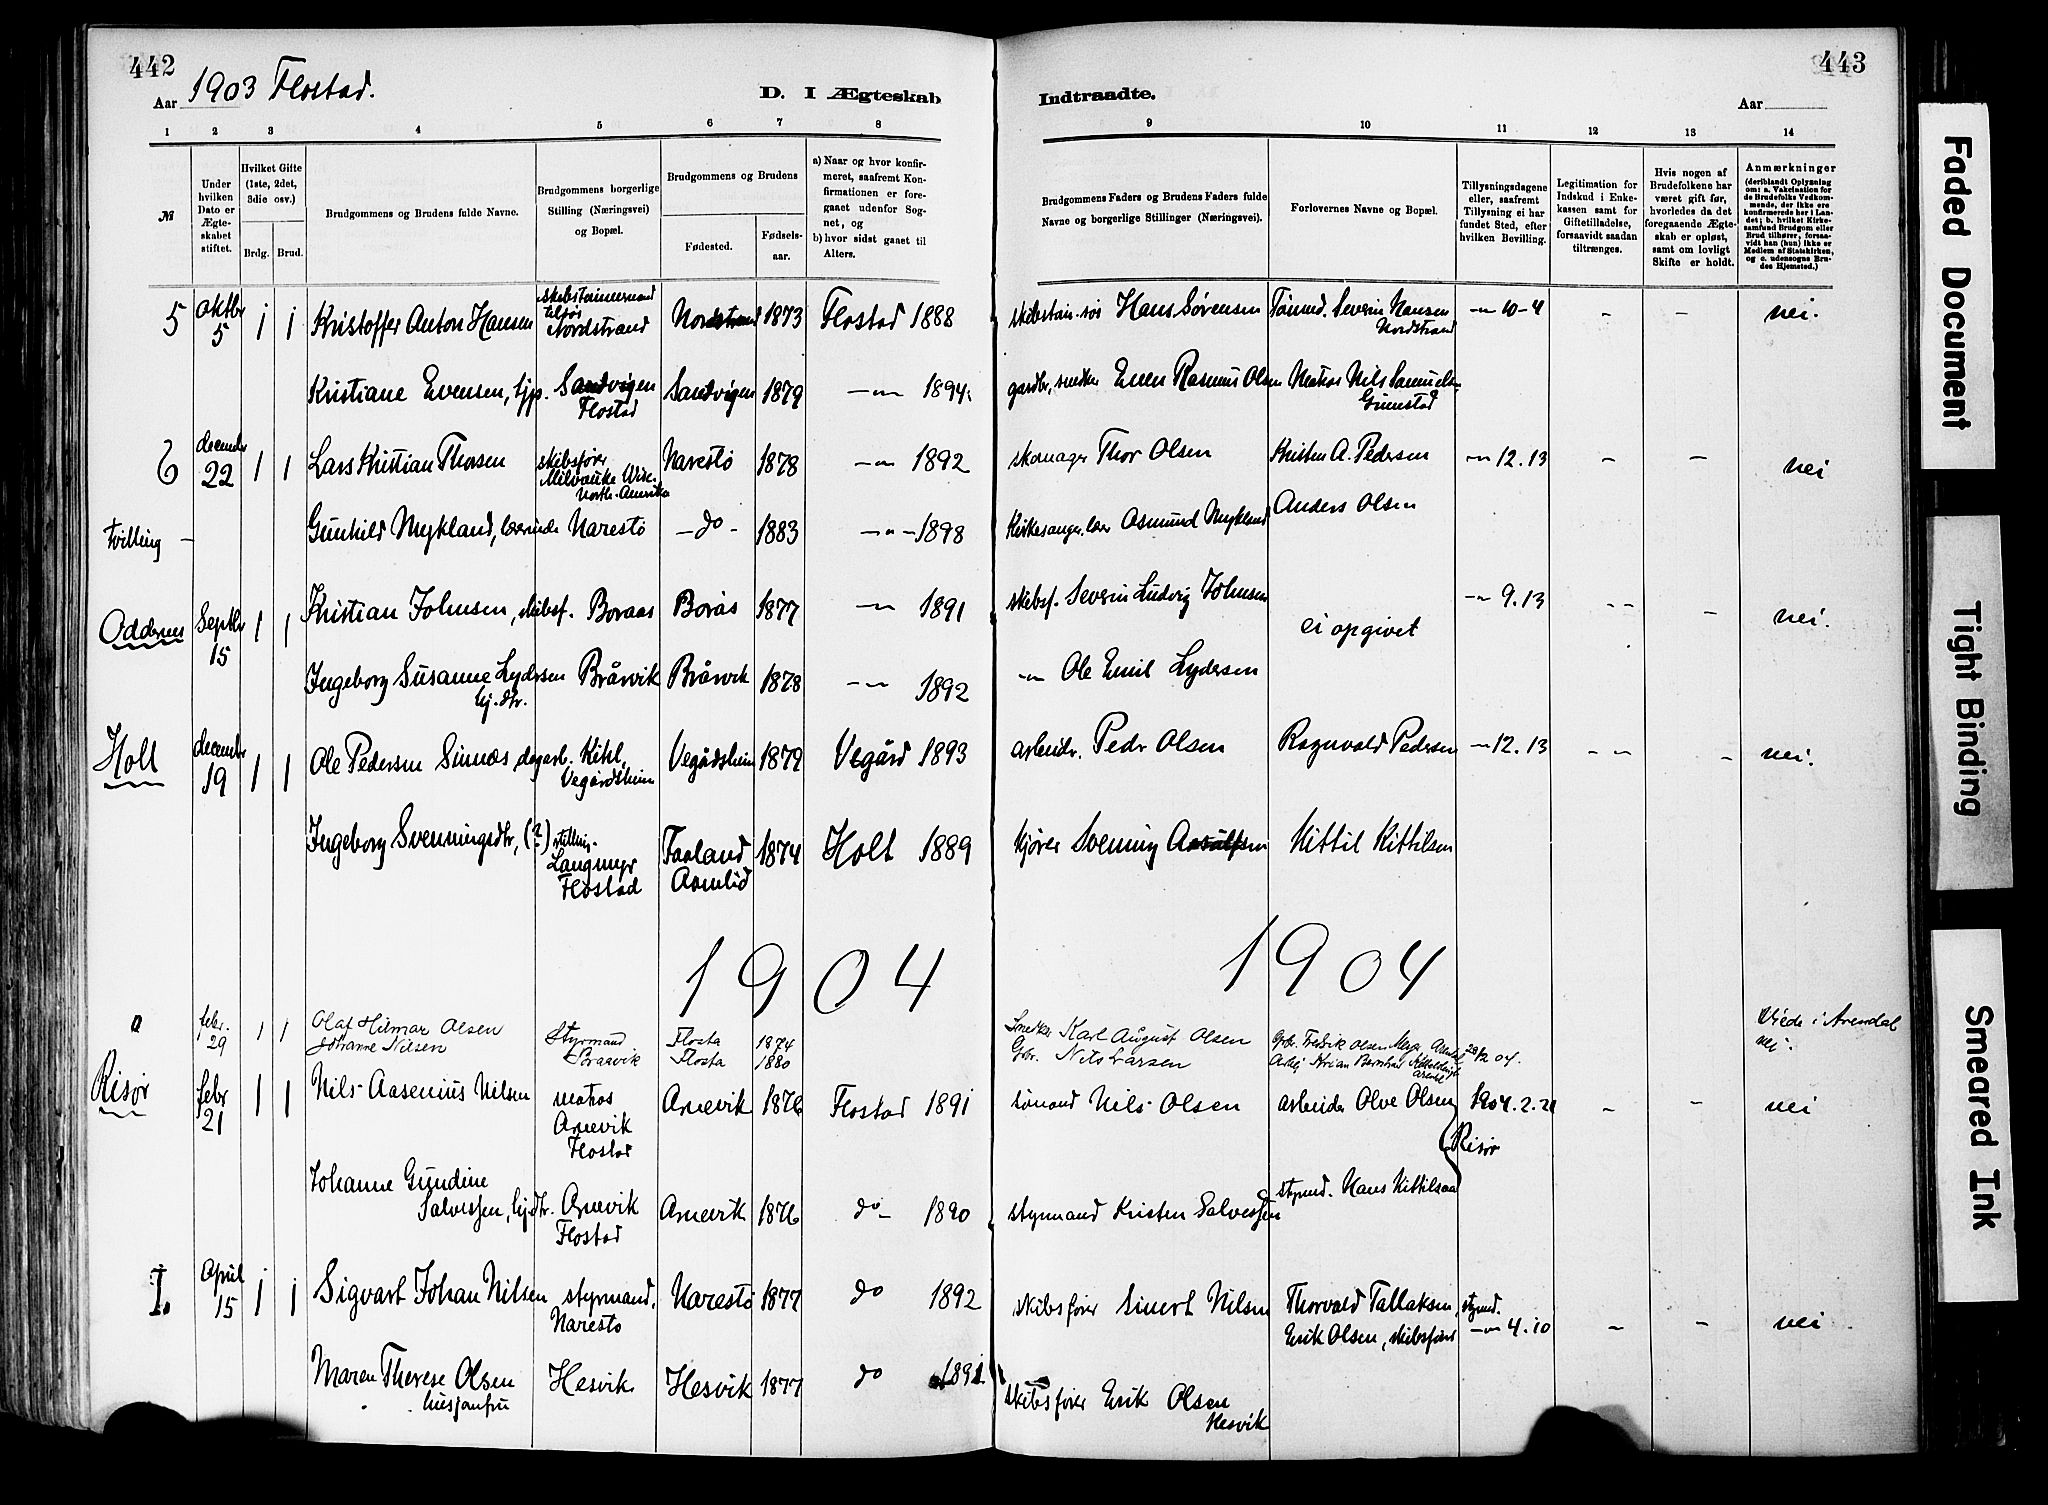 442
Aar 1903 Flostad.
D. I Ægteskab
1 2 3 4 5 6 7 8
№
Under hvilken Dato er Ægteskabet stiftet.
Hvilket Gifte (1ste, 2det, 3die osv.)
Brdg. Brud.
Brudgommens og Brudens fulde Navne.
Brudgommens borgerlige Stilling (Næringsvei) og Bopæl.
Brudgommens og Brudens
Fødested.
Fødsels-aar.
a) Naar og hvor konfirmeret, saafremt Konfirmationen er foregaaet udenfor Sognet, og
b) hvor sidst gaaet til Alters.
5 oktbr 5 1 1 Kristoffer Anton Hansen Nordstrand Nordstrand 1873 Flostad 1888
Kristiane Evensen, Sandvigen Flostad Sandvigen 1879 -"- 1894
6 decembr 22 1 1 Lars Kristian Thorsen skibsfører Milvauke Wisc. North-Amerika Narestø 1878 -"- 1892
Tvilling - Gunhild Mykland, Narestø -do- 1883 -"- 1898
Oddernes Septbr 15 1 1 Kristian Johnsen, skibsf. Boraas Borås 1877 -"- 1891
Ingeborg Susanne Lydersen Bråvik Bråvik 1878 -"- 1892
Holt decembr 19 1 1 Ole Pedersen Simnæs, dagarb. Kihl, Vegårdsheim Vegårdsheim 1879 Vegård 1893
Ingeborg Svenningsdtr, (?) stilling. Langmyr Flostad Faaland 1874 Holt 1889
1904
0 febr. 29 1 1 Olaf Hilmar Olsen Styrmand Flosta 1874
Johanne Nilsen Braavik Flosta 1880
Risør febr 21 1 1 Nils Aasenius Nilsen matros Arnevik Flostad Arnevik 1876 Flostad 1891
Johanne Gundine Salvessen, Arnevik Flostad Arnevik 1876 do- 1890
I. April 15 1 1 Sigvart Johan Nilsen styrmand, Narestø Narestø 1877 do 1892
Maren Therese Olsen husjomfru Hesvik Hesvik 1877 do 1891
443
Indtraadte.
Aar
9 10 11 12 13 14
Brudgommens Faders og Brudens Faders fulde Navne og borgerlige Stillinger (Næringsvei).
Forlovernes Navne og Bopæl.
Tillysningsdagene eller, saafremt Tillysning ei har fundet Sted, efter hvilken Bevilling.
Legitimation for Indskud i Enkekassen samt for Giftetilladelse, forsaavidt saadan tiltrænges.
Hvis nogen af Brudefolkene har været gift før, hvorledes da det foregaaende Ægteskab er opløst, samt om lovligt Skifte er holdt.
Anmærkninger (deriblandt Oplysning om: a. Vakcination for de Brudefolks Vedkommende, der ikke ere konfirmerede her i Landet; b. hvilket Kirkesamfund Brudgom eller Brud tilhører, forsaavidt han (hun) ikke er Medlem af Statskirken, og c. udensogns Brudes Hjemsted.)
Hans Sørensen Severin Hansen Nordstrand -"- 10-4 - - nei.
gardbr., snedker Even Rasmus Olsen Matros Nils Samuels- Grimstad
skomager Thor Olsen Kristen A. Pedersen -"- 12.13 - - nei
Kirkesanger, lærer Asmund Mykland Anders Olsen
skibsf. Severin Ludvig Johnsen ei opgivet -"- 9.13 - - - nei.
-"- Ole Emil Lydersen
arbeidr. Pedr Olsen Ragnvald Pedersen -"- 12.13 - - - nei.
kjører Svenning Aasulfsen Kittil Kittilsen
1904
Snedker Karl August Olsen Fredrik Olsen Arendal 29/2 04. Viede i Arendal
Gbr. Nils Larsen nei.
sømand Nils Olsen arbeider Olve Olsen 1904.2.21 - - nei
Risør
styrmand Kristen Salvessen styrmd. Hans Kittilsen
skibsfører Sivert Nilsen Thorvald Tallaksen, styrmd.
Erik Olsen, skibsfører -"- 4.10 - - nei
skibsfører Erik Olsen Hesvik
Faded Document
Tight Binding
Smeared Ink